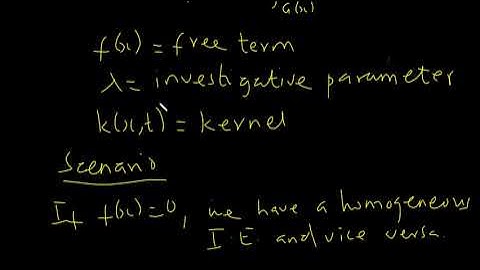 G(x)
f(x) = free term
λ = investigative parameter
k(x,t) = kernel
Scenario
If f(x)=0, we have a homogeneous
I.E. and vice versa.